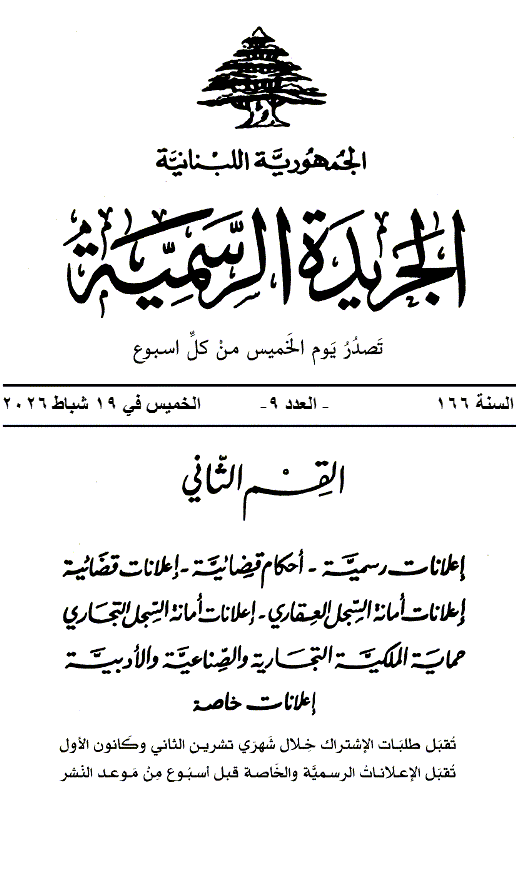 الجمهوريَّة اللبنانيَّة
الجَريدَة الرسَّميَّة
تَصدُرُ يَوم الخَميس منْ كلِّ اسبوع
السنة ١٦٦ - العدد ٩- الخميس في ١٩ شباط ٢٠٢٦
القِسْم الثّاني
إعلانات رسميَّة - أحكام قضائيَّة - إعلانات قضائية
إعلانات أمانة السِّجل العقاري - إعلانات أمانة السِّجل التجاري
حماية الملكيَّة التجارية والصِّناعيَّة والأدبيَّة
إعلانات خاصة
تُقبَل طلبَات الإشتراك خِلال شَهرَي تشرين الثاني وكَانون الأول
تُقبَل الإعلاناتُ الرسميَّة والخَاصة قبل أسبُوع مِنْ مَوعد النَشر